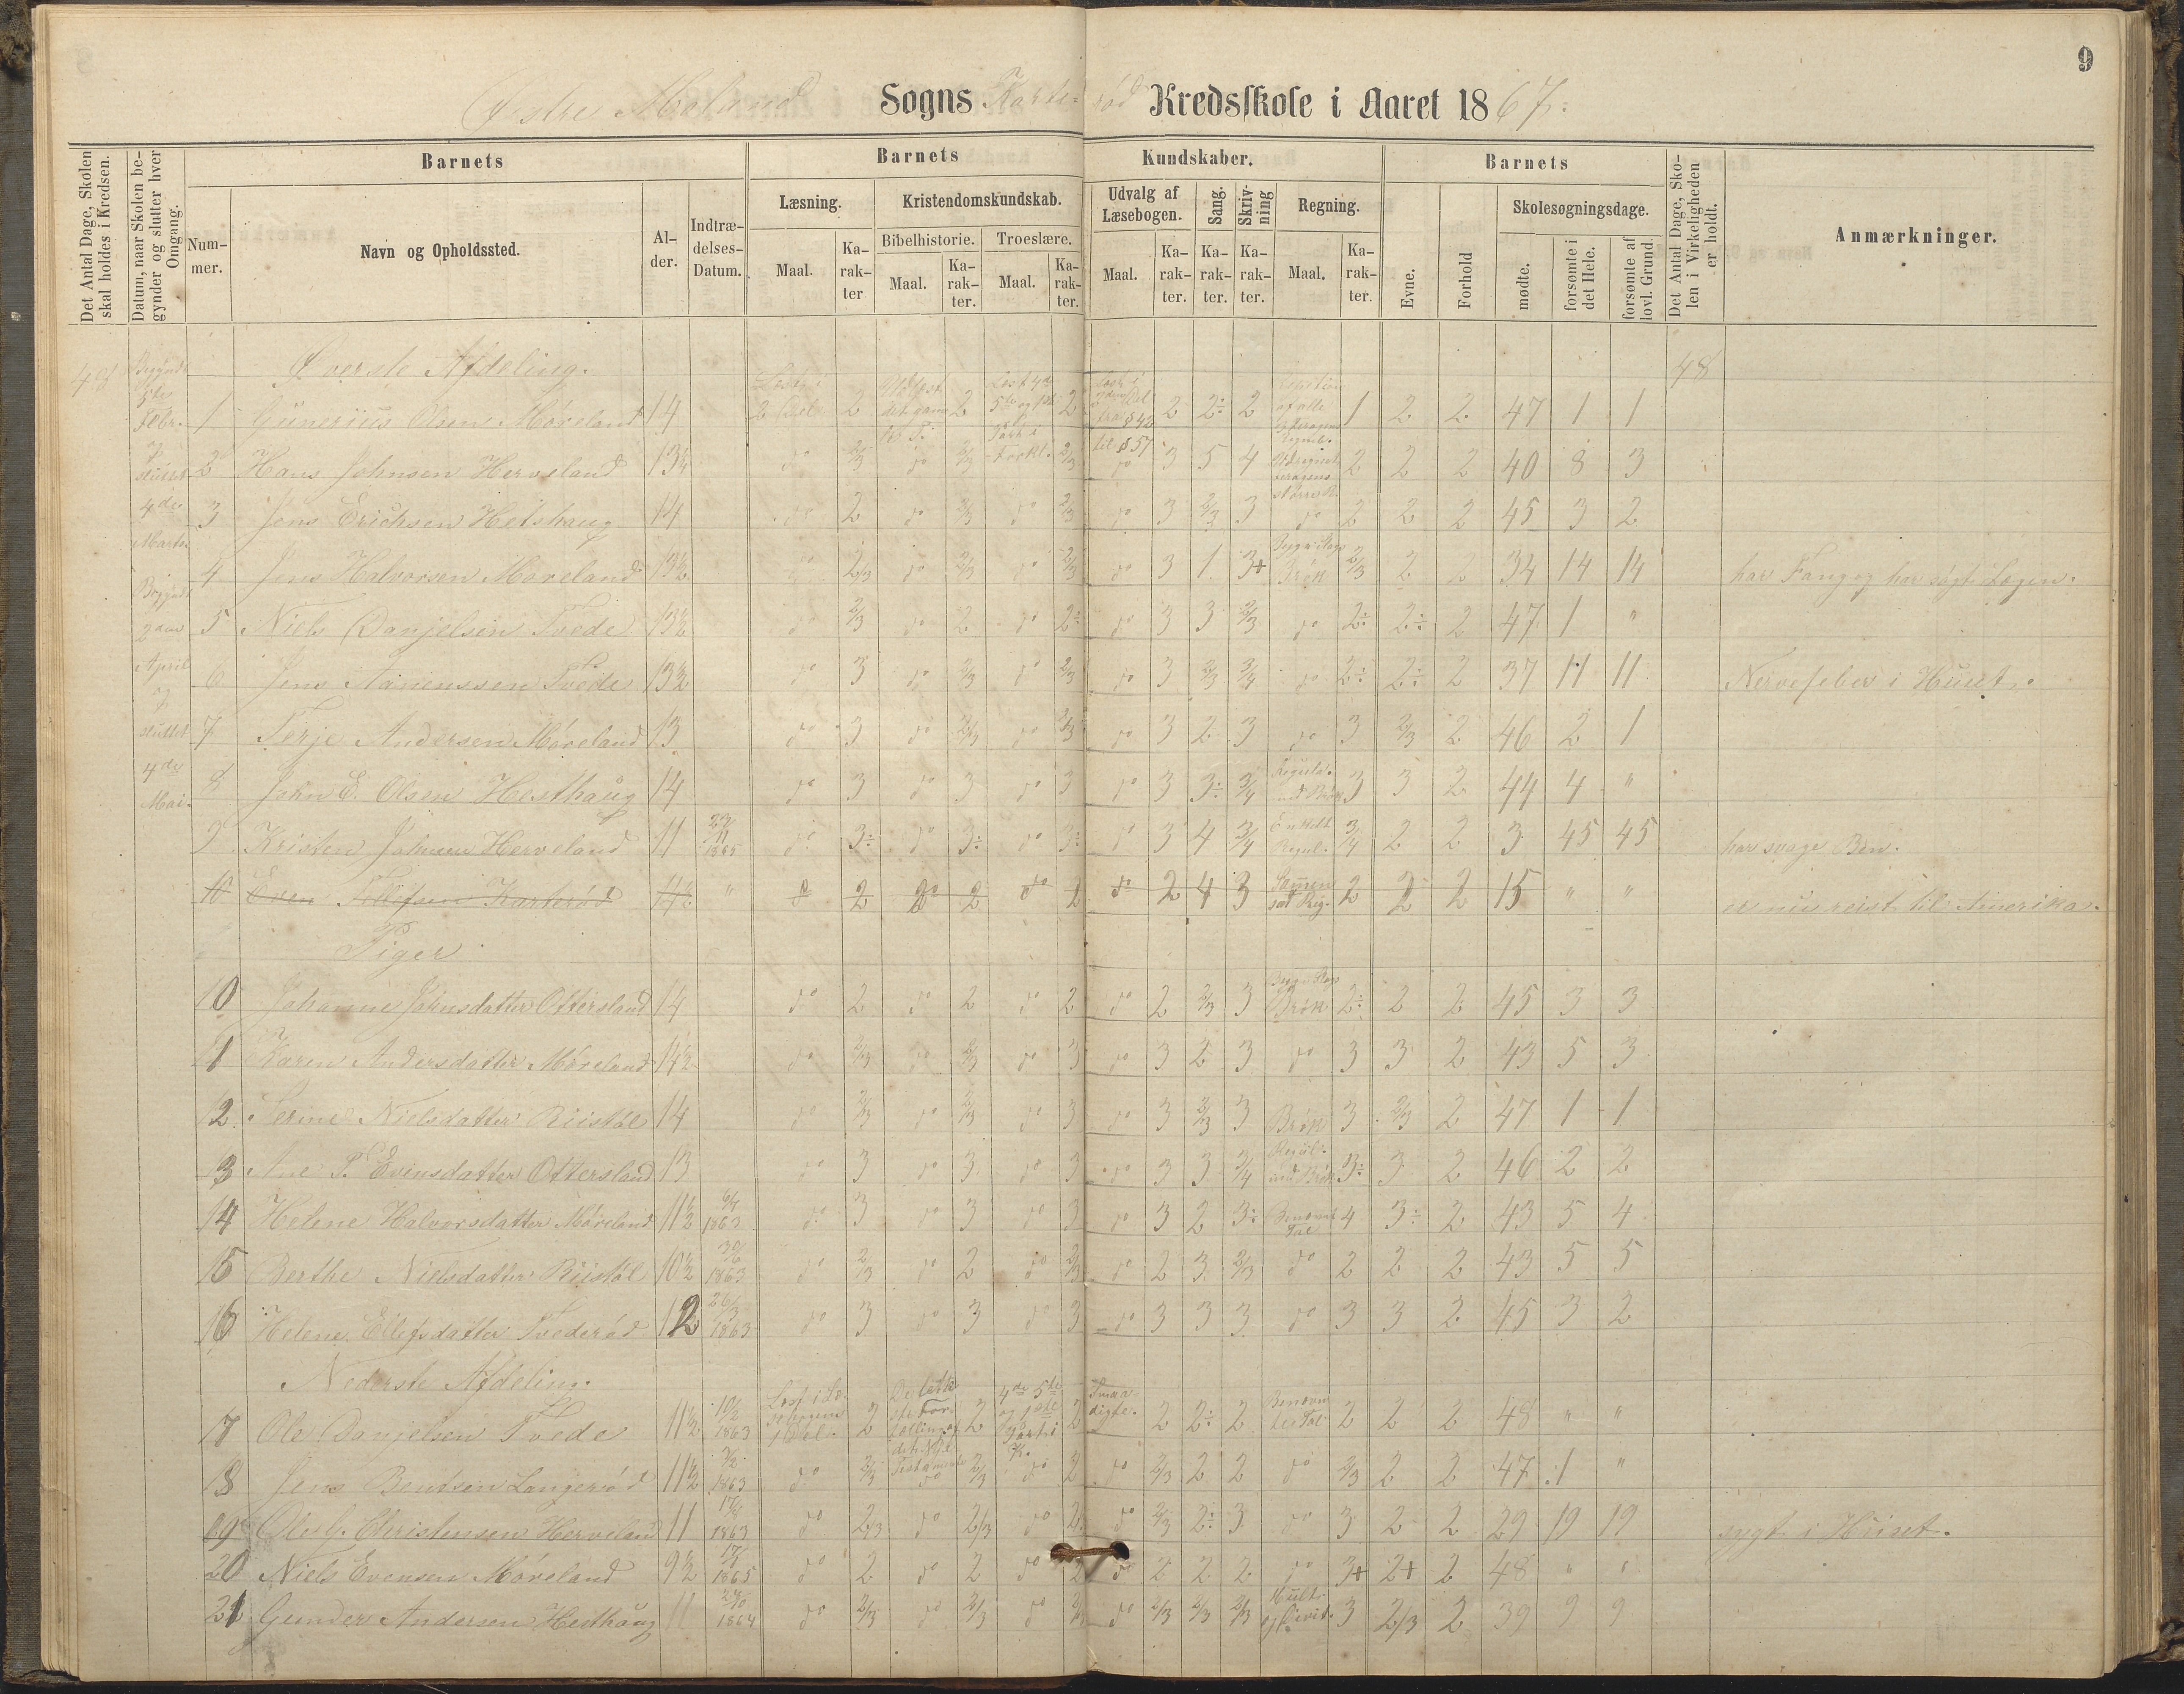 9
Østre Moland Sogns Karte=rød Kredsskole i Aaret 1867.
Det Antal Dage, Skolen skal holdes i Kredsen.
Datum, naar Skolen begynder og slutter hver Omgang.
Barnets
Nummer.
Navn og Opholdssted.
Alder.
Indtrædelses-Datum.
Barnets Kundskaber.
Læsning.
Maal.
Karakter
Kristendomskundskab.
Bibelhistorie.
Maal.
Karakter.
Troeslære.
Maal.
Karakter.
Udvalg af Læsebogen.
Maal.
Karakter.
Sang.
Karakter.
Skrivning
Karakter.
Regning.
Maal.
Karakter.
Barnets
Evne.
Forhold
Skolesøgningsdage.
mødte.
forsømte i det Hele.
forsømte af lovl. Grund.
Det Antal Dage, Skolen i Virkeligheden er holdt.
Anmærkninger.
48 Øverste Afdeling. 48
1 Gunerius Olsen Møreland 14 2 2 2 2 2÷ 2 1 2 2 47 1 1
2 Hans Johnsen Herveland 13½ do 2/3 do 2/3 2/3 do 3 5 4 2 2 2 40 8 3
3 Jens Erichsen Hetshaug 14 do 2 do 2/3 do 2/3 do 3 2/3 3 do 2 2 2 45 3 2
4 Jens Halvorsen Møreland 13½ do 2/3 do 2/3 do 2/3 do 3 1 3+ Brøk 2/3 2 2 34 14 14 har Fang og har søgt Lægen.
5 Niels Danjelsen Tvede 13½ do 2/3 do 2 do 2÷ do 3 3 2/3 do 2÷ 2÷ 2 47 1 "
6 Jens Aanenssen Tvede 13½ do 3 do 2/3 do 2/3 do 3 2/3 3/4 do 2÷ 2÷ 2 37 11 11 Nervefeber i Huset.
7 Terje Andersen Møreland 13 do 3 do 2/3 do 2/3 do 3 2 3 do 3 2/3 2 46 2 1
8 John E. Olsen Hesthaug 14 do 3 do 3 do 3 do 3 3÷ 3/4 3 3 2 44 4 "
9 Kristen Johnsen Herveland 11 1865 do 3÷ do 3÷ do 3÷ do 3 4 3/4 Enkelt Regul. 3/4 2 2 3 45 45 har svage Ben.
10 Even Ellefsen Karterød 14½ " do 2 do 2 do 2 do 2 4 3 2 2 2 15 " " er nu reist til Amerika.
Piger
10 Johanne Johnsdatter Ottersland 14 do 2 do 2 do 2 do 2 2/3 3 Brøk 2÷ 2 2 45 3 3
11 Karen Andersdatter Møreland 14½ do 2/3 do 2/3 do 3 do 3 2 3 do 3 3 2 43 5 3
12 Terine Nielsdatter Riistøl 14 do 2/3 do 2/3 do 3 do 3 2/3 3 Brøk 3 2/3 2 47 1 1
13 Ane P. Evensdatter Ottersland 13 do 3 do 3 do 3 do 3 3 3/4 Regul. med Brøk 3÷ 3 2 46 2 2
14 Helene Halvorsdatter Møreland 11½ 1863 do 3 do 3 do 3 do 3 2 3÷ Benævnt Tal 4 3÷ 2 43 5 4
15 Berthe Nielsdatter Riistøl 10½ 1863 do 2/3 do 2 do 2/3 do 2 3 2/3 do 2 2 2 43 5 5
16 Helene Ellefsdatter Tvederød 12 1863 do 3 do 3 do 3 do 3 3 3 do 3 3 2 45 3 2
Nederste Afdeling.
17 Ole Danjelsen Tvede 11½ 10/2 1863 2 2 2 Smaadigte. 2 2÷ 2 2 2 2 48 " "
18 Jens Bentsen Langerød 11½ 1863 do 2/3 do 2/3 do 2 do 2/3 2 2 do 2/3 2 2 47 1 "
19 Ole G. Christensen Herveland 11 1863 do 2/3 do 2/3 do 2 do 2/3 2÷ 3 do 3 2 2 29 19 19 sygt i Huset.
20 Niels Evensen Møreland 9½ 1865 do 2 do 2 do 2 do 2 2 2 do 3+ 2+ 2 48 " "
21 Gunder Andersen Hesthaug 11 1864 do 2/3 do 2/3 do 2/3 do 2/3 2/3 2/3 Mult. og Divid. 3 2/3 2 39 9 9